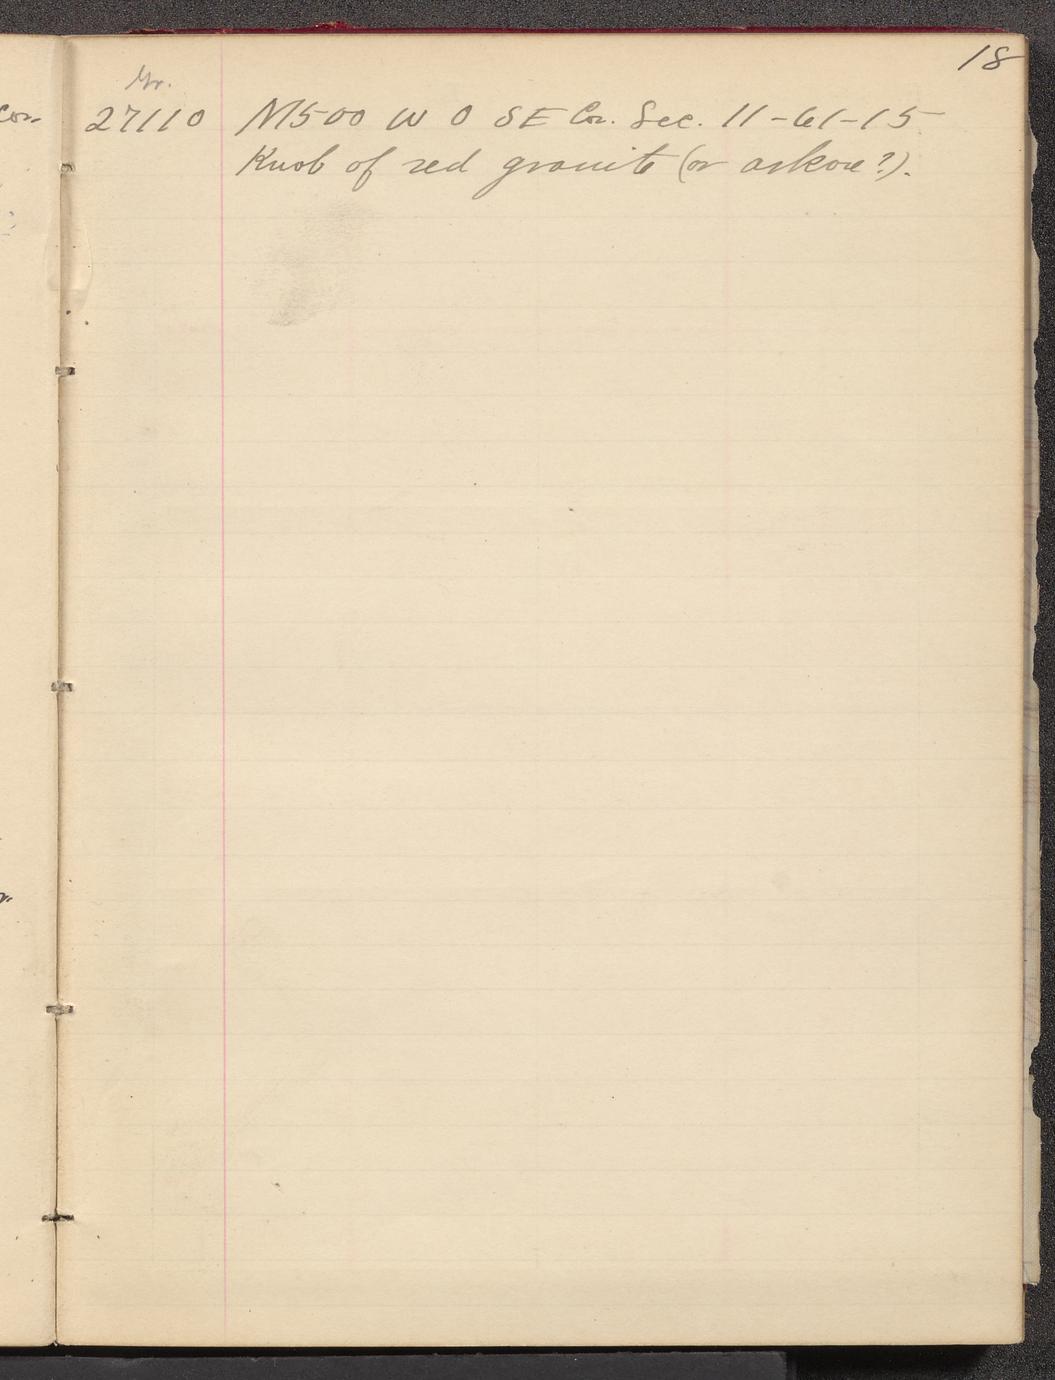 18
Gr.
27110 N1500 W 0 SE Cor. Sec. 11-61-15
Knob of red granite (or arkose?).
Cor.